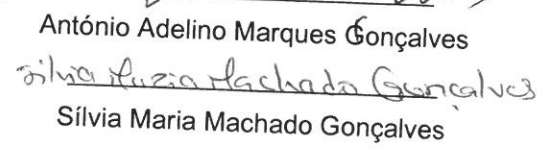 António Adelino Marques Gonçalves
Sílvia Maria Machado Gonçalves
Sílvia Maria Machado Gonçalves